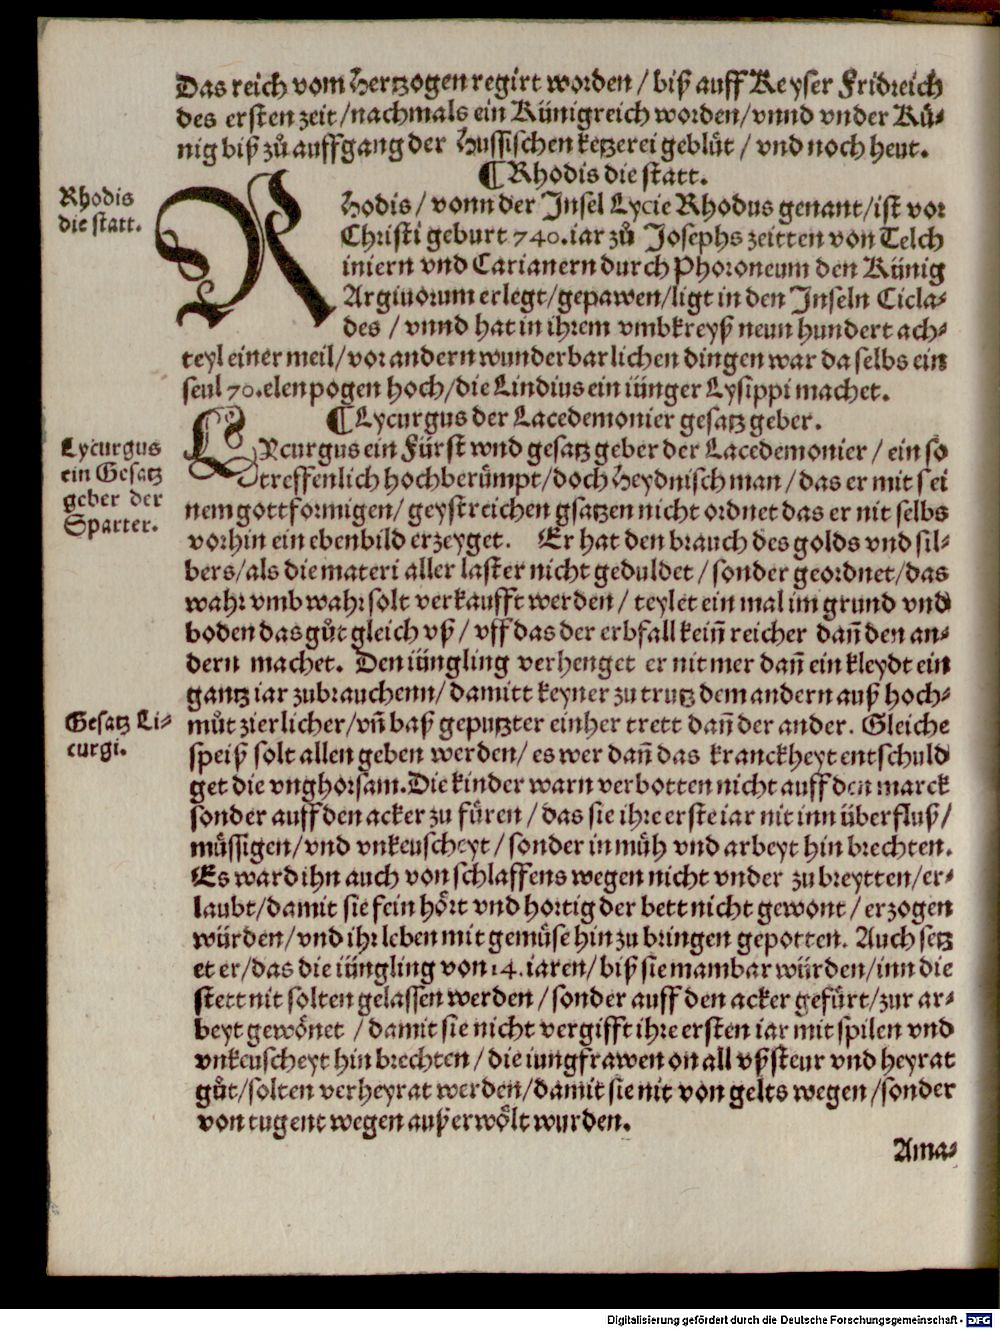 Das reich vom hertzogen regirt worden / biß auff Keyser Fridreich
des ersten zeit / nachmals ein Künigreich worden / vnnd vnder Kü⸗
nig biß zů auffgang der Hussischen ketzerei geblůt / vnd noch heut.
¶ Rhodis die statt.
Rhodis
die statt.
Rhodis / vonn der Insel Lycie Rhodus genant / ist vor
Christi geburt 740. iar zů Josephs zeitten von Telch
iniern vnd Carianern durch Phoroneum den Künig
Argiuorum erlegt / gepawen / ligt in den Inseln Cicla⸗
des / vnnd hat in ihrem vmbkreyß neun hundert ach⸗
teyl einer meil / vor andern wunderbarlichen dingen war daselbs ein
seul 70. elenpogen hoch / die Lindius ein iünger Lysippi machet.
¶ Lycurgus der Lacedemonier gesatz geber.
Lycurgus
ein Gesatz
geber der
Sparter.
LYcurgus ein Fürst vnd gesatz geber der Lacedemonier / ein so
treffenlich hochberümpt / doch Heydnisch man / das er mit sei
nem gottformigen / geystreichen gsatzen nicht ordnet das er nit selbs
vorhin ein ebenbild erzeyget. Er hat den brauch des golds vnd sil⸗
bers / als die materi aller laster nicht geduldet / sonder geordnet / das
wahr vmb wahr solt verkaufft werden / teylet ein mal im grund vnd
boden das gůt gleich vß / vff das der erbfall keiñ reicher dañ den an⸗
dern machet. Den iüngling verhenget er nit mer dañ ein kleydt ein
gantz iar zubrauchenn / damitt keyner zu trutz dem andern auß hoch⸗
Gesatz Li⸗
curgi.
můt zierlicher / vñ baß geputzter einher trett dañ der ander. Gleiche
speiß solt allen geben werden / es wer dañ das kranckheyt entschuld
get die vnghorsam. Die kinder warn verbotten nicht auff den marck
sonder auff den acker zu füren / das sie ihre erste iar nit inn überfluß /
müssigen / vnd vnkeuscheyt / sonder in müh vnd arbeyt hin brechten.
Es ward ihn auch von schlaffens wegen nicht vnder zu breytten / er⸗
laubt / damit sie fein hört vnd hortig der bett nicht gewont / erzogen
würden / vnd ihr leben mit gemüse hin zu bringen gepotten. Auch setz
et er / das die iüngling von 14. iaren / biß sie mambar würden / inn die
stett nit solten gelassen werden / sonder auff den acker gefürt / zur ar⸗
beyt gewönet / damit sie nicht vergifft ihre ersten iar mit spilen vnd
vnkeuscheyt hin brechten / die iungfrawen on all vßsteur vnd heyrat
gůt / solten verheyrat werden / damit sie nit von gelts wegen / sonder
von tugent wegen außerwölt wurden.
Ama⸗
Digitalisierung gefördert durch die Deutsche Forschungsgemeinschaft - DFG